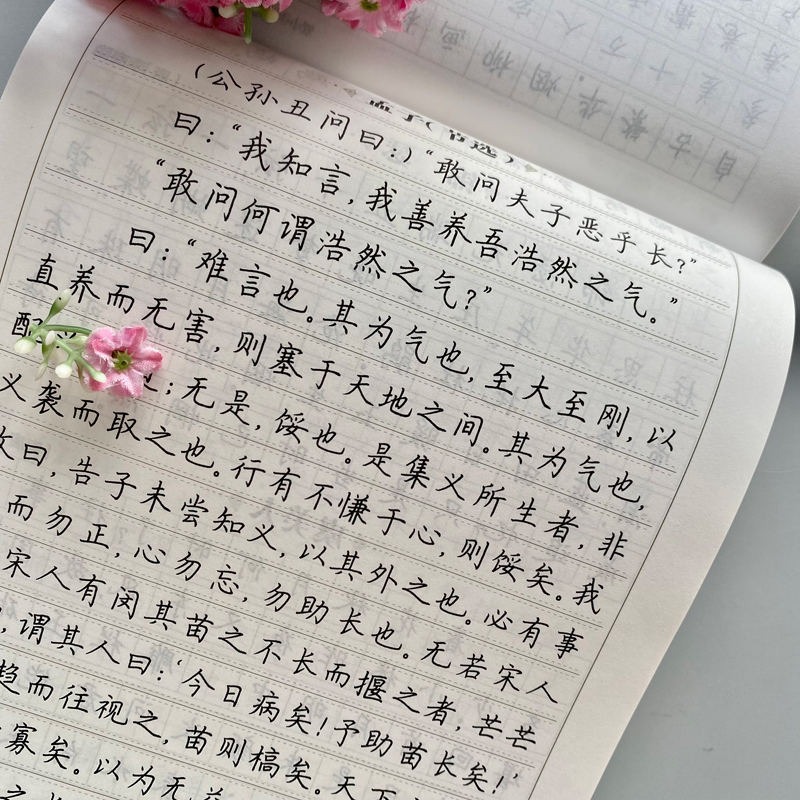 孟子(节选)
（公孙丑问曰：）“敢问夫子恶乎长？”
曰：“我知言，我善养吾浩然之气。”
“敢问何谓浩然之气？”
曰：“难言也。其为气也，至大至刚，以
直养而无害，则塞于天地之间。其为气也，
配；无是，馁也。是集义所生者，非
义袭而取之也。行有不慊于心，则馁矣。我
故曰，告子未尝知义，以其外之也。必有事
而勿正，心勿忘，勿助长也。无若宋人
宋人有闵其苗之不长而揠之者，芒芒
，谓其人曰：‘今日病矣！予助苗长矣！’
趋而往视之，苗则槁矣。天下
寡矣。以为无益